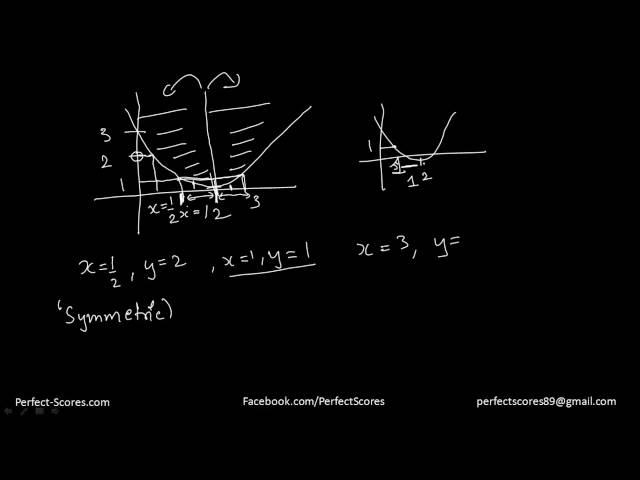 3
2
1
x=1/2 x=1 2 3
1
1 2
x=1/2, y=2, x=1, y=1 x=3, y=
(Symmetric)
Perfect-Scores.com Facebook.com/PerfectScores perfectscores89@gmail.com